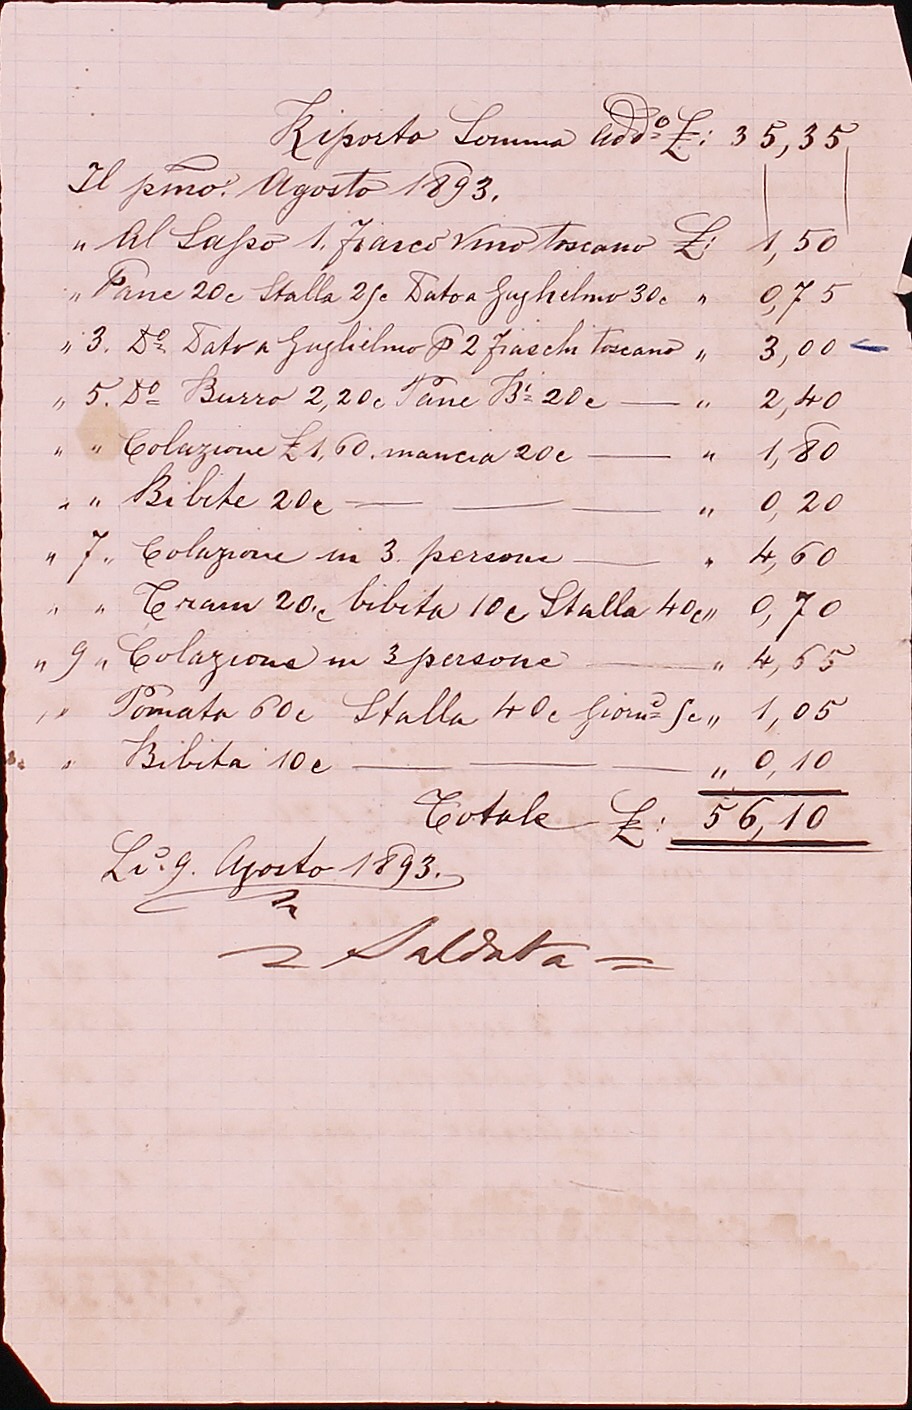 Riporto Somma addo £: 35,35
Il pmo: Agosto 1893.
" Al Sasso 1. fiasco Vino toscano £: 1,50
" Pane 20c Stalla 25c Dato a Guglielmo 30c " 0,75
" 3. Do Dato a Guglielmo P 2 fiaschi toscano " 3,00
" 5. Do Burro 2,20c Pane Bi 20c — " 2,40
" " Colazione £ 1,60. mancia 20c — " 1,80
" " Bibite 20c — — — " 0,20
" 7 " Colazione in 3 persone — " 4,60
" " Tram 20c bibita 10c Stalla 40c " 0,70
" 9 " Colazione in 3 persone — " 4,65
" " Pomata 60c Stalla 40c Giorno 5c " 1,05
" " Bibita 10c — — — " 0,10
Totale £: 56,10
Li. 9. Agosto 1893.
Saldata